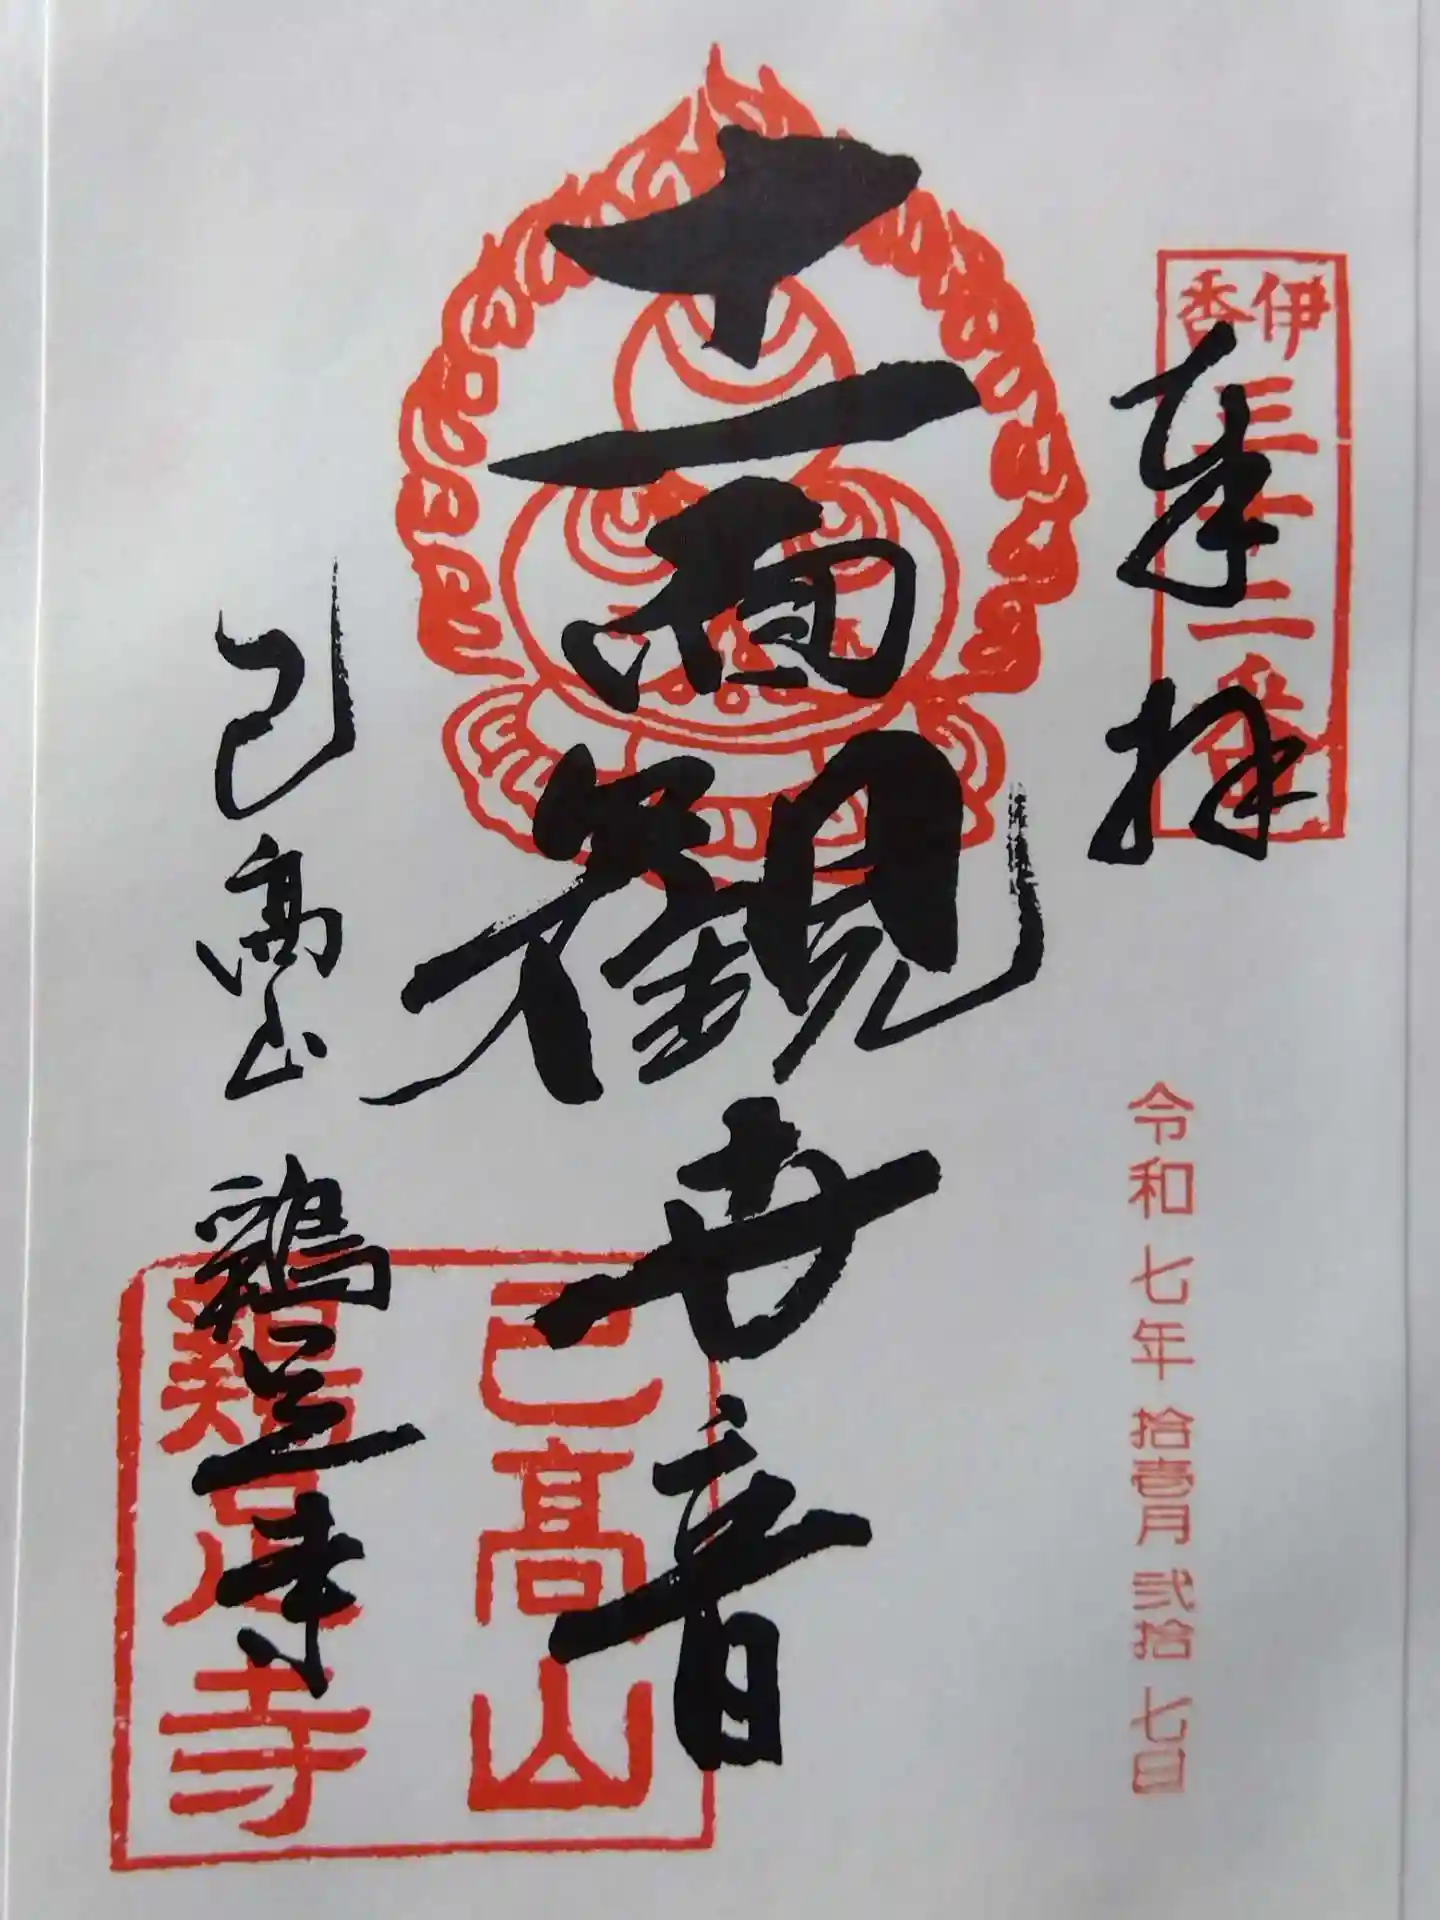 伊香
三十二番
奉拝
令和七年拾壹月弐拾七日
十一面観世音
己髙山 鶏足寺
己髙山
鶏足寺